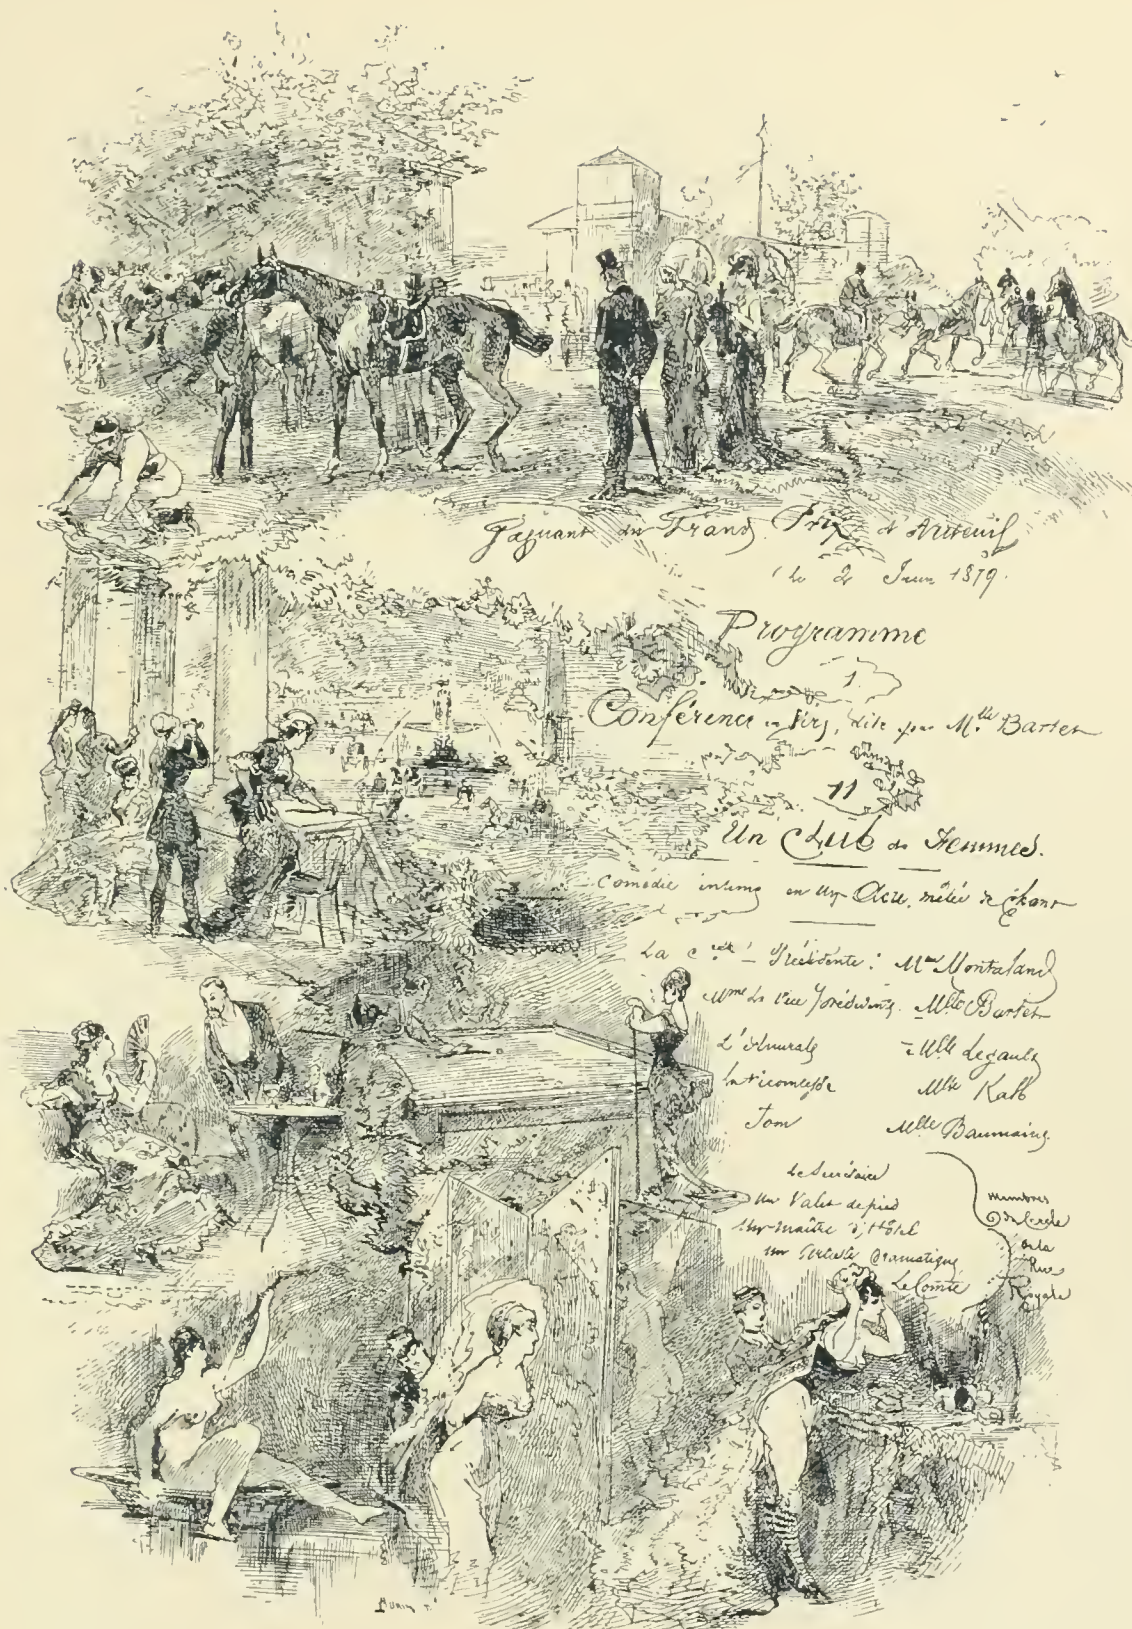 Gagnant du Grand Prix d'Auteuil
le 2 Juin 1879.
Programme
1
Conférence en vers, dite par Mlle Bartet
11
Un Club de Femmes.
Comédie intime en un Acte, mêlée de chant
La Présidente : Mme Montaland
Mme la Vice Mlle Bartet
L'Amirale Mlle Legault
La Vicomtesse Mlle Kalb
Tom Mlle Baumaine
Le Secrétaire
Un Valet de pied
Un Maître d'Hôtel
un Artiste Dramatique
Le Comte
Membres
du Cercle
de la
Rue
Royale